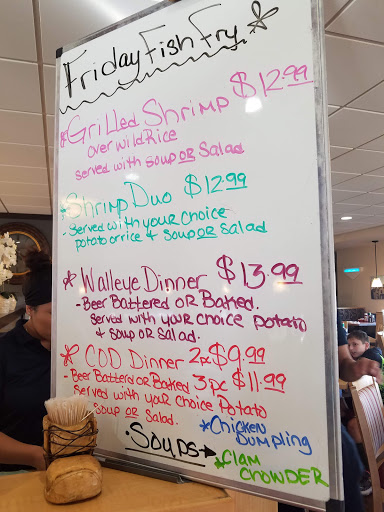 Friday Fish Fry
Grilled Shrimp $12.99
over wild Rice
served with soup OR Salad
Shrimp Duo $12.99
- Served with your choice
potato or rice & soup OR salad
Walleye Dinner $13.99
- Beer Battered OR Baked.
Served with your choice potato
& soup OR salad.
COD Dinner 2pc $9.99
- Beer Batterd OR Baked 3pc $11.99
Served with your choice Potato
soup OR Salad.
Chicken
Dumpling
Soups →
Clam
Chowder